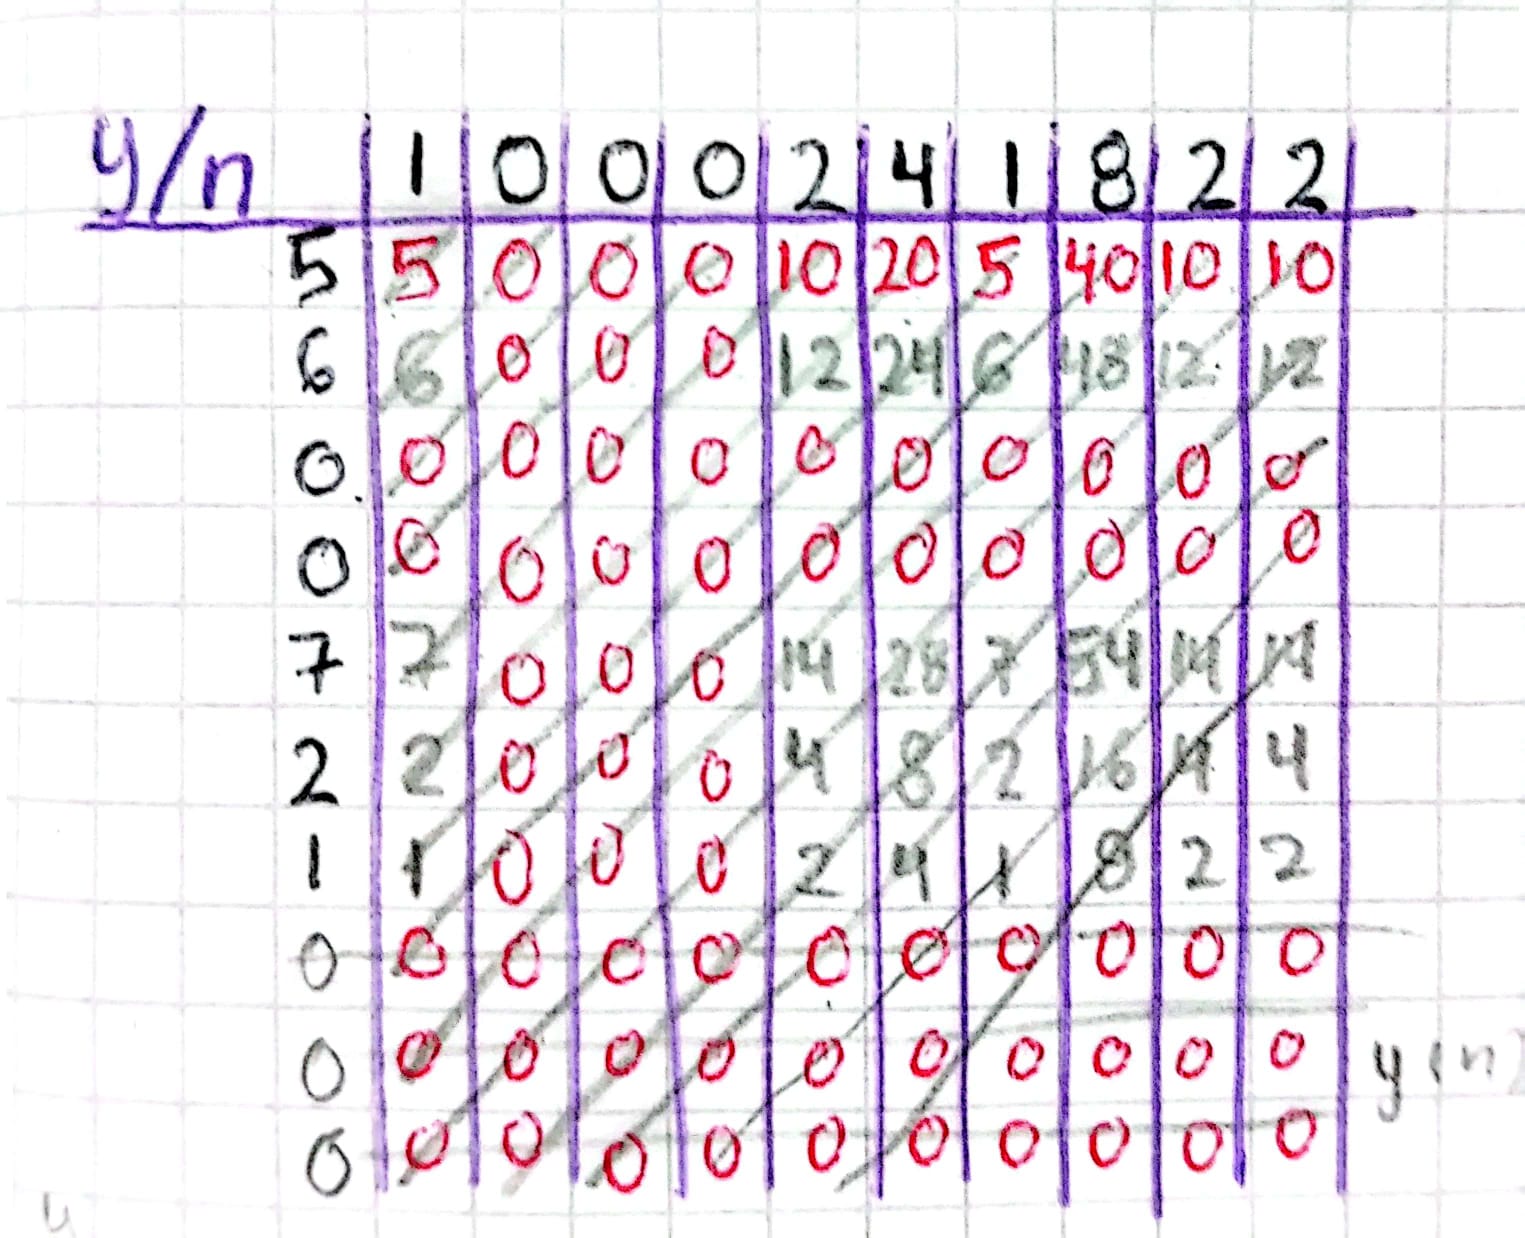 y/n 1 0 0 0 2 4 1 8 2 2
5 5 0 0 0 10 20 5 40 10 10
6 6 0 0 0 12 24 6 48 12 12
0 0 0 0 0 0 0 0 0 0 0
0 0 0 0 0 0 0 0 0 0 0
7 7 0 0 0 14 28 7 54 14 14
2 2 0 0 0 4 8 2 16 4 4
1 1 0 0 0 2 4 1 8 2 2
0 0 0 0 0 0 0 0 0 0 0
0 0 0 0 0 0 0 0 0 0 0 y(n)
0 0 0 0 0 0 0 0 0 0 0